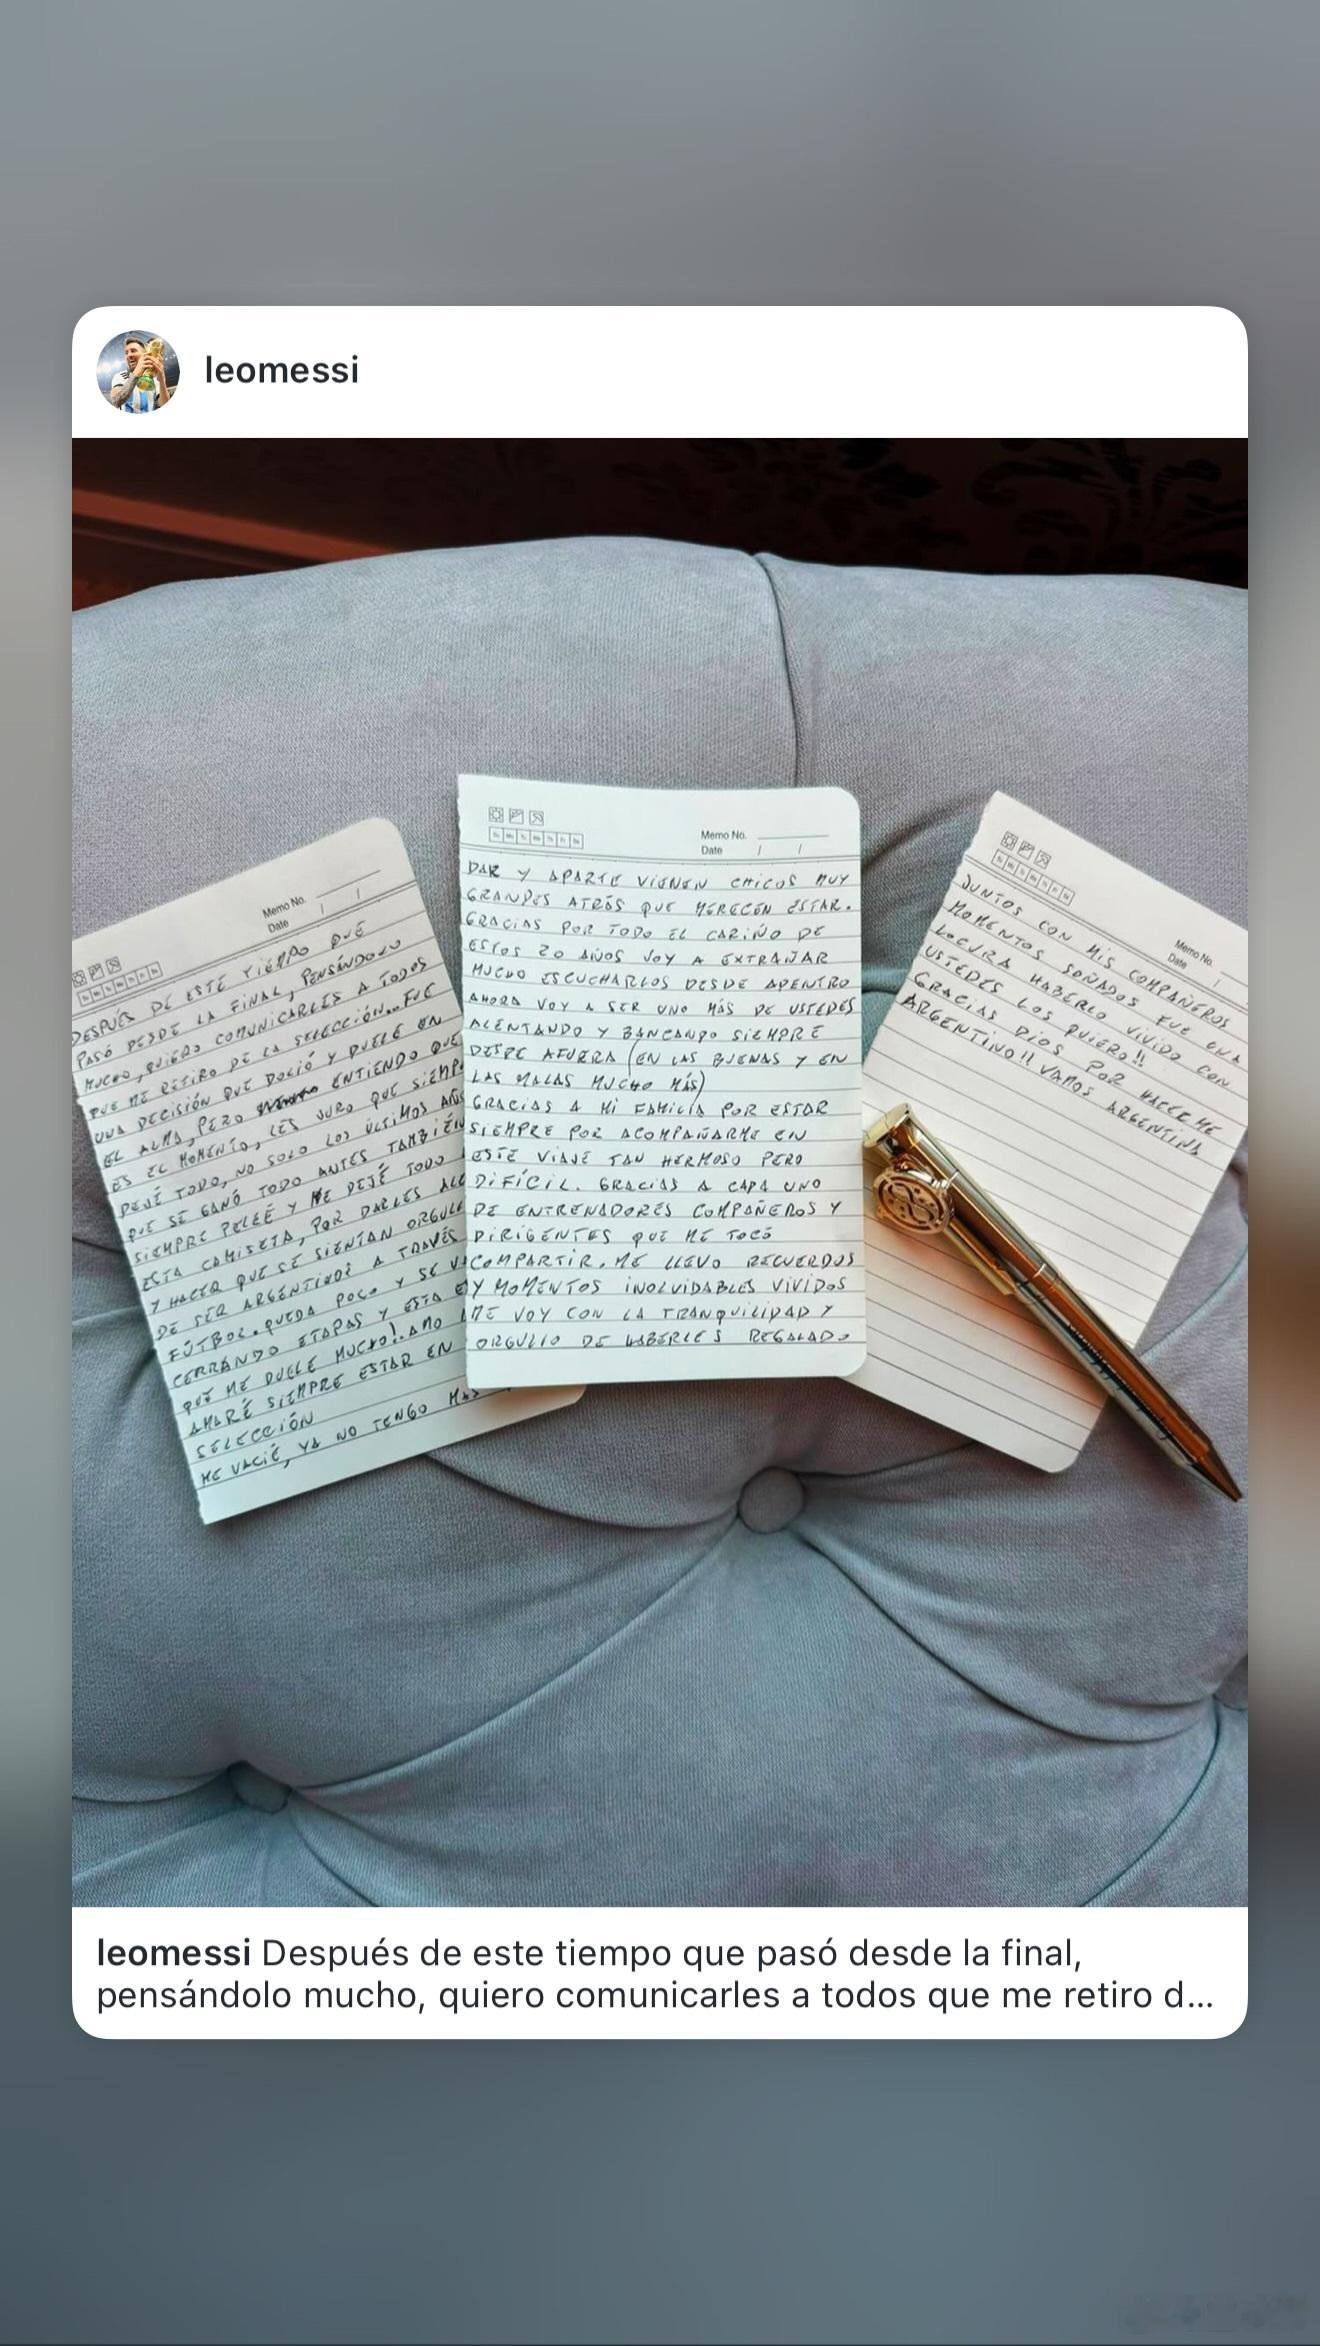 leomessi
Memo No.
Date / /
DESPUÉS DE ESTE TIEMPO QUE
PASÓ DESDE LA FINAL, PENSÁNDOLO
MUCHO, QUIERO COMUNICARLES A TODOS
QUE ME RETIRO DE LA SELECCIÓN... FUE
UNA DECISIÓN QUE DOLIÓ Y DUELE EN
EL ALMA, PERO ENTIENDO QUE
ES EL MOMENTO, LES JURO QUE SIEMP
DEJÉ TODO, NO SOLO LOS ÚLTIMOS AÑO
QUE SE GANÓ TODO ANTES TAMBIÉN
SIEMPRE PELEÉ Y ME DEJÉ TODO
ESTA CAMISETA, POR DARLES ALE
Y HACER QUE SE SIENTAN ORGULL
DE SER ARGENTINOS A TRAVÉS
FÚTBOL. QUEDA POCO Y SE VA
CERRANDO ETAPAS Y ESTA E
QUE ME DUELE MUCHO!. AMO
AMARÉ SIEMPRE ESTAR EN
SELECCIÓN
ME VACIÉ, YA NO TENGO MAS
Memo No.
Date / /
DAR Y APARTE VIENEN CHICOS MUY
GRANDES ATRÁS QUE MERECEN ESTAR.
GRACIAS POR TODO EL CARIÑO DE
ESTOS 20 AÑOS VOY A EXTRAÑAR
MUCHO ESCUCHARLOS DESDE ADENTRO
AHORA VOY A SER UNO MÁS DE USTEDES
ALENTANDO Y BANCANDO SIEMPRE
DESDE AFUERA (EN LAS BUENAS Y EN
LAS MALAS MUCHO MÁS)
GRACIAS A MI FAMILIA POR ESTAR
SIEMPRE POR ACOMPAÑARME EN
ESTE VIAJE TAN HERMOSO PERO
DIFÍCIL. GRACIAS A CADA UNO
DE ENTRENADORES COMPAÑEROS Y
DIRIGENTES QUE ME TOCÓ
COMPARTIR. ME LLEVO RECUERDOS
Y MOMENTOS INOLVIDABLES VIVIDOS
ME VOY CON LA TRANQUILIDAD Y
ORGULLO DE HABERLES REGALADO
Memo No.
Date /
JUNTOS CON MIS COMPAÑEROS
MOMENTOS SOÑADOS FUE UNA
LOCURA HABERLO VIVIDO CON
USTEDES LOS QUIERO!!
GRACIAS DIOS POR HACERME
ARGENTINO!! VAMOS ARGENTINA
leomessi Después de este tiempo que pasó desde la final,
pensándolo mucho, quiero comunicarles a todos que me retiro d...